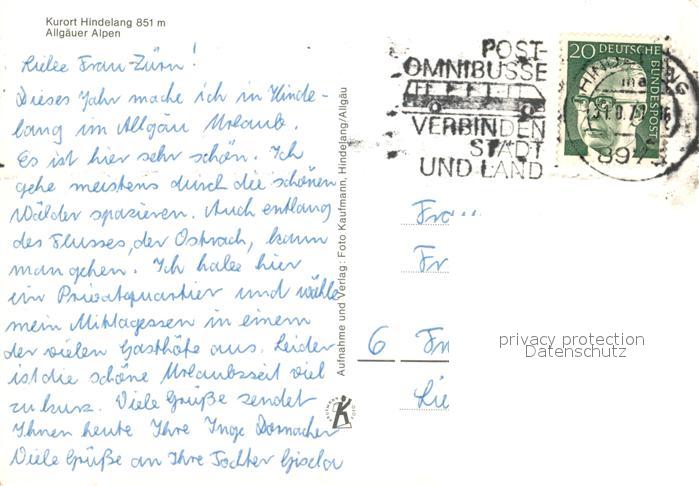 Kurort Hindelang 851 m
Allgäuer Alpen
Liebe Frau Zürn!
Dieses Jahr mache ich in Hinde-
lang im Allgäu Urlaub.
Es ist hier sehr schön. Ich
gehe meistens durch die schönen
Wälder spazieren. Auch entlang
des Flusses, der Ostrach, kann
man gehen. Ich habe hier
ein Privatquartier und wähle
mein Mittagessen in einem
der vielen Gasthöfe aus. Leider
ist die schöne Urlaubszeit viel
zu kurz. Viele Grüße sendet
Ihnen heute Ihre Inge
Viele Grüße an Ihre Tochter Gisela
Aufnahme und Verlag: Foto Kaufmann, Hindelang/Allgäu
POST-
OMNIBUSSE
VERBINDEN
STADT
UND LAND
20 DEUTSCHE
BUNDESPOST
HINDELANG
897
Fra
Fr
6
Lie
privacy protection
Datenschutz